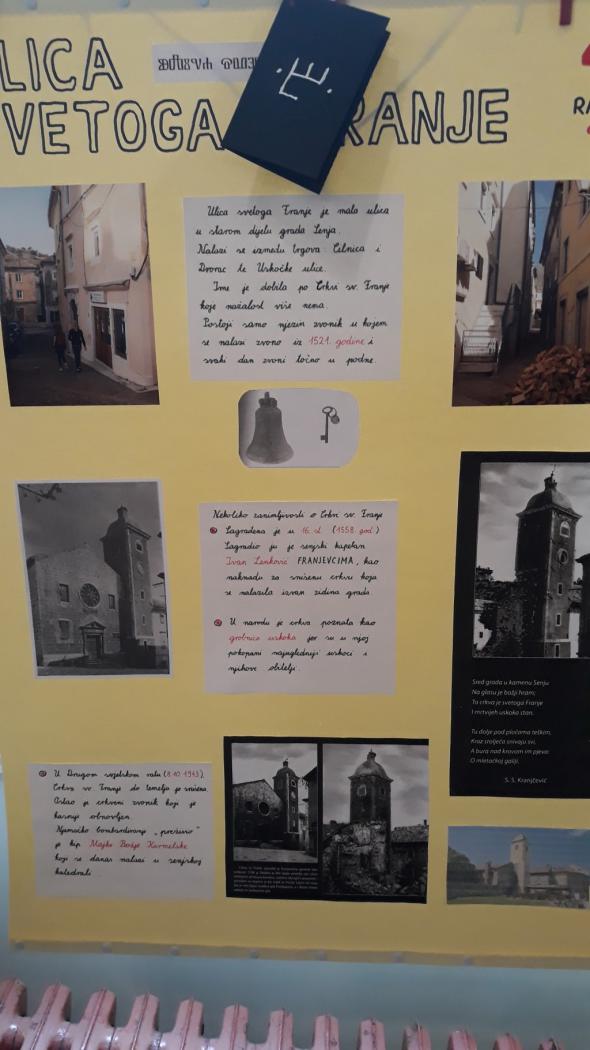 LICA
VETOGA RANJE
RA
Ulica svetoga Franje je mala ulica
u starom dijelu grada Senja.
Nalazi se između trgova: Cilnica i
Dvorac te Uskočke ulice.
Ime je dobila po Crkvi sv. Franje
koje nažalost više nema.
Postoji samo njezin zvonik u kojem
se nalazi zvono iz 1521. godine i
svaki dan zvoni točno u podne.
Nekoliko zanimljivosti o Crkvi sv. Franje
Sagrađena je u 16. st. (1558. god.)
Sagradio ju je senjski kapetan
Ivan Lenković FRANJEVCIMA, kao
naknadu za srušenu crkvu koja
se nalazila izvan zidina grada.
U narodu je crkva poznata kao
grobnica uskoka jer su u njoj
pokopani najugledniji uskoci i
njihove obitelji.
Sred grada u kamenu Senju
Na glasu je božji hram;
Ta crkva je svetoga Franje
I mrtvijeh uskoka stan.
Tu dolje pod pločama teškim,
Kroz stoljeća snivaju svi,
A bura nad krovom im pjeva:
O mletačkoj galiji.
S. S. Kranjčević
U Drugom svjetskom ratu (8.10.1943.)
Crkva sv. Franje do temelja je srušena.
Ostao je crkveni zvonik koji je
kasnije obnovljen.
Njemačko bombardiranje „preživio"
je kip Majke Božje Karmelske
koji se danas nalazi u senjskoj
katedrali.